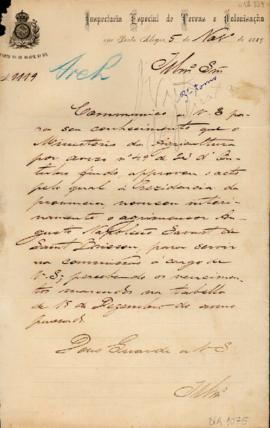 Inspectoria Especial de Terras e Colonisação
em Porto Alegre, 5 de Nov.º de 188
Arch
Illmo Snr
Communico a V. S. pa
ra seu conhecimento que o
Ministerio da Agricultura
por aviso nº 49 de 22 d'Ou
tubro findo, approvou o acto
pelo qual a Presidencia da
provincia nomeou interi
namente o agrimensor Au
gusto Napoleão
Saint para servir
na commissão a cargo de
V. S., percebendo os vencimen
tos marcados na tabella
de 15 de Dezembro do anno
passado.
Deus Guarde a V. S.
Illmo